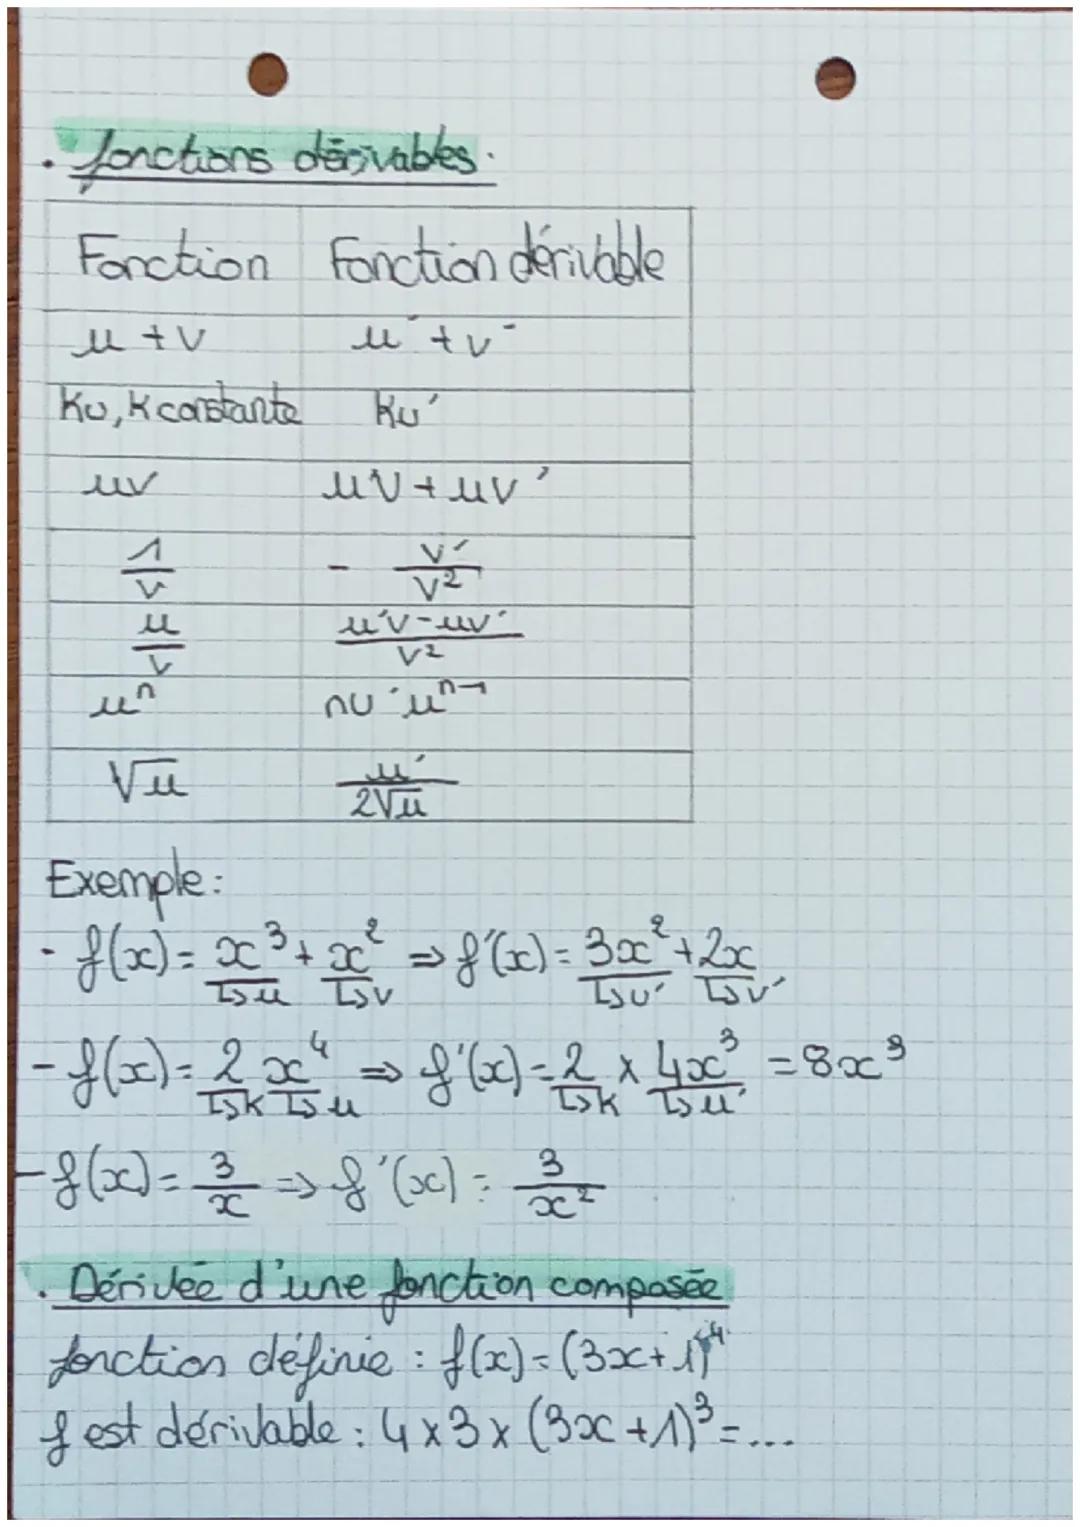 . fonctions dérivables.
Fonction Fonction dérivable
u + v u' + v'
Ku, K constante Ku'
uv u'v + uv'
1/v - v'/v²
u/v u'v - uv'/v²
uⁿ nu'uⁿ⁻¹
√u u'/2√u
Exemple:
- f(x) = x³ + x² ⇒ f'(x) = 3x² + 2x
↳u ↳v ↳u' ↳v'
- f(x) = 2x⁴ ⇒ f'(x) = 2 x 4x³ = 8x³
↳K ↳u ↳K ↳u'
- f(x) = 3/x ⇒ f'(x) = 3/x²
. Dérivée d'une fonction composée
fonction définie : f(x) = (3x+1)⁴
f est dérivable : 4 x 3 x (3x+1)³ = ...